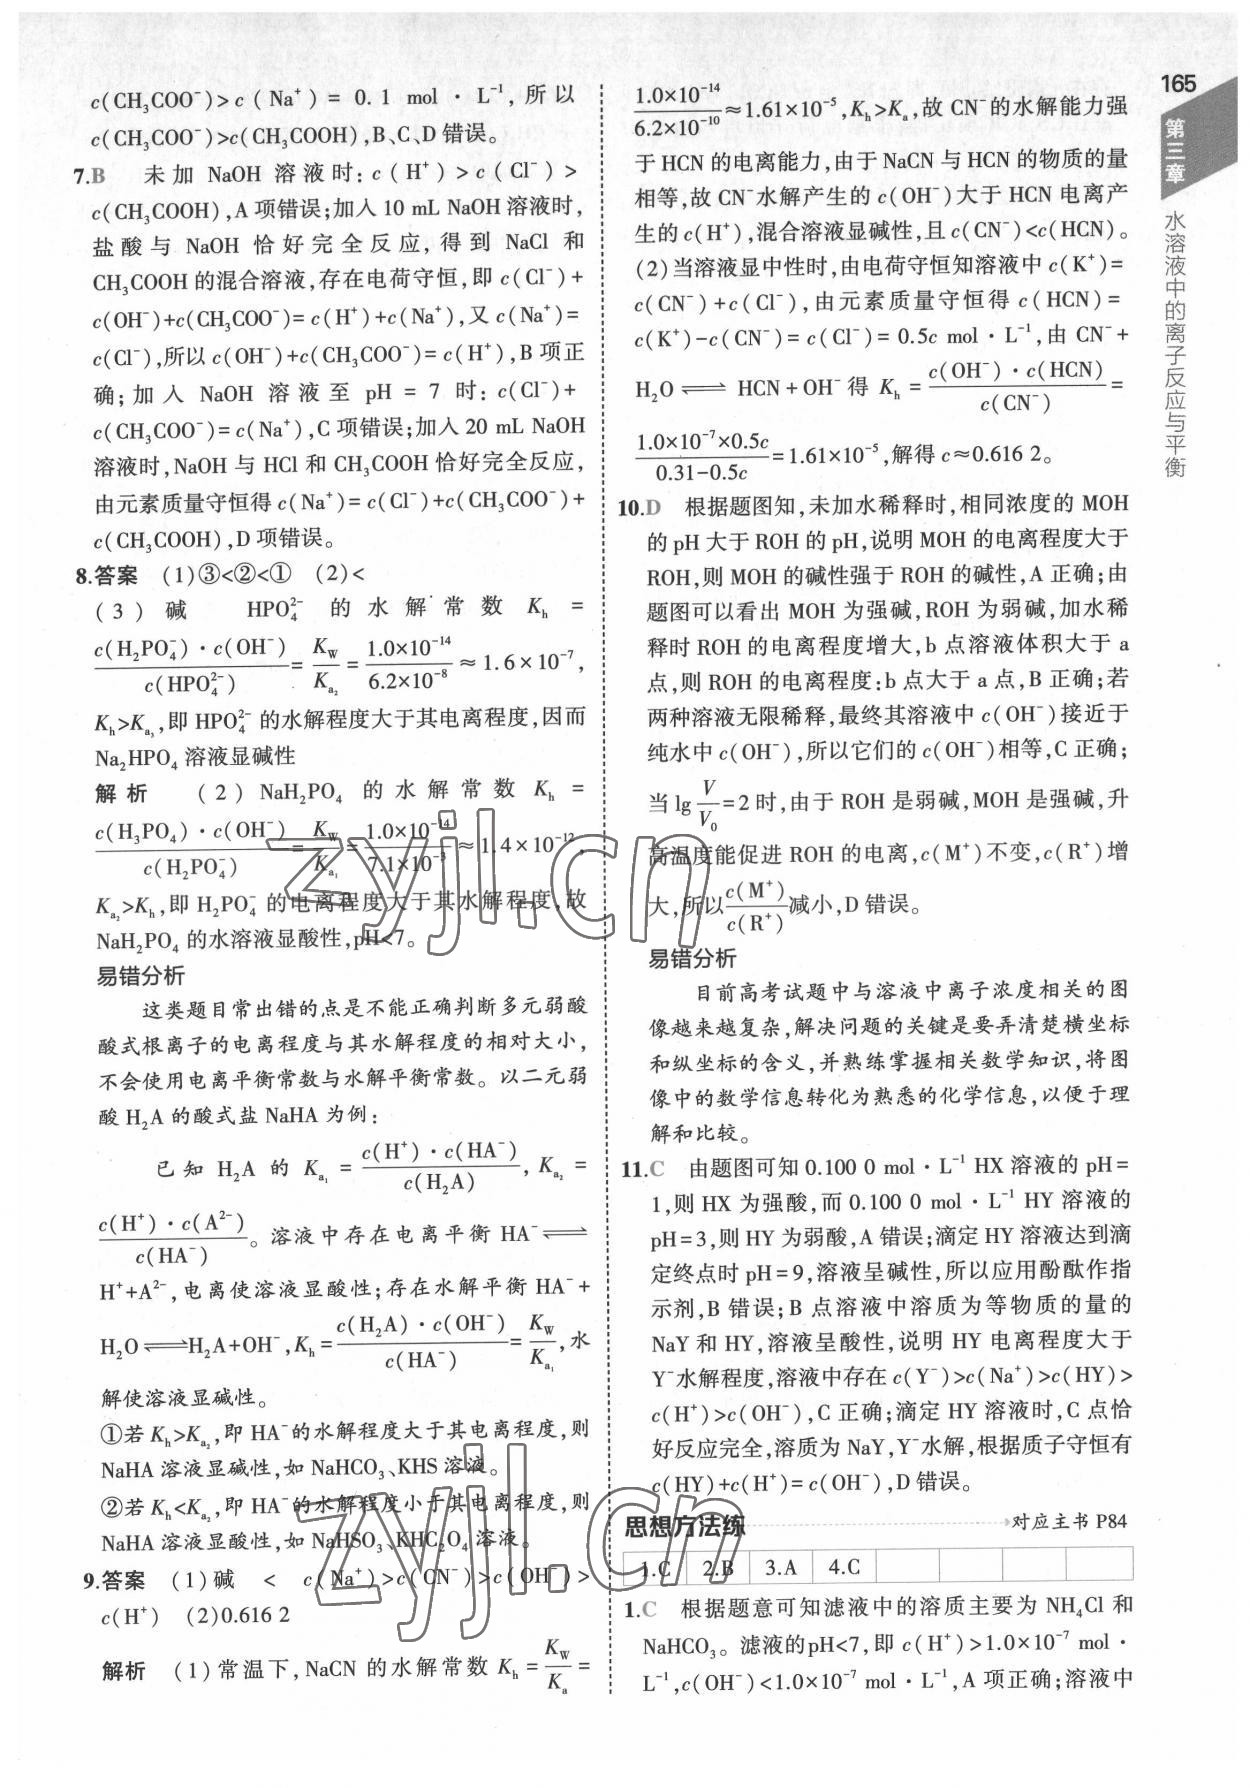 c(CH₃COO⁻)>c(Na⁺)=0.1 mol·L⁻¹,所以
c(CH₃COO⁻)>c(CH₃COOH),B、C、D 错误。
7.B 未加 NaOH 溶液时:c(H⁺)>c(Cl⁻)>
c(CH₃COOH),A 项错误;加入 10 mL NaOH 溶液时,
盐酸与 NaOH 恰好完全反应,得到 NaCl 和
CH₃COOH 的混合溶液,存在电荷守恒,即 c(Cl⁻)+
c(OH⁻)+c(CH₃COO⁻)=c(H⁺)+c(Na⁺),又 c(Na⁺)=
c(Cl⁻),所以 c(OH⁻)+c(CH₃COO⁻)=c(H⁺),B 项正
确;加入 NaOH 溶液至 pH=7 时:c(Cl⁻)+
c(CH₃COO⁻)=c(Na⁺),C 项错误;加入 20 mL NaOH
溶液时,NaOH 与 HCl 和 CH₃COOH 恰好完全反应,
由元素质量守恒得 c(Na⁺)=c(Cl⁻)+c(CH₃COO⁻)+
c(CH₃COOH),D 项错误。
8.答案 (1)③<②<① (2)<
(3)碱 HPO₄²⁻ 的水解常数 Kₕ =
c(H₂PO₄⁻)·c(OH⁻)/c(HPO₄²⁻) = K_W/K_a₂ = 1.0×10⁻¹⁴/6.2×10⁻⁸ ≈1.6×10⁻⁷,
Kₕ>K_a₃,即 HPO₄²⁻ 的水解程度大于其电离程度,因而
Na₂HPO₄ 溶液显碱性
解析 (2)NaH₂PO₄ 的水解常数 Kₕ =
c(H₃PO₄)·c(OH⁻)/c(H₂PO₄⁻) = K_W/K_a₁ = 1.0×10⁻¹⁴/7.1×10⁻³ ≈1.4×10⁻¹²,
K_a₂>Kₕ,即 H₂PO₄⁻ 的电离程度大于其水解程度,故
NaH₂PO₄ 的水溶液显酸性,pH<7。
易错分析
这类题目常出错的点是不能正确判断多元弱酸
酸式根离子的电离程度与其水解程度的相对大小,
不会使用电离平衡常数与水解平衡常数。以二元弱
酸 H₂A 的酸式盐 NaHA 为例:
已知 H₂A 的 K_a₁ = c(H⁺)·c(HA⁻)/c(H₂A), K_a₂ =
c(H⁺)·c(A²⁻)/c(HA⁻)。溶液中存在电离平衡 HA⁻⇌
H⁺+A²⁻,电离使溶液显酸性;存在水解平衡 HA⁻+
H₂O⇌H₂A+OH⁻,Kₕ=c(H₂A)·c(OH⁻)/c(HA⁻)=K_W/K_a₁,水
解使溶液显碱性。
①若 Kₕ>K_a₂,即 HA⁻的水解程度大于其电离程度,则
NaHA 溶液显碱性,如 NaHCO₃、KHS 溶液。
②若 Kₕ<K_a₂,即 HA⁻的水解程度小于其电离程度,则
NaHA 溶液显酸性,如 NaHSO₃、KHC₂O₄ 溶液。
9.答案 (1)碱 < c(Na⁺)>c(CN⁻)>c(OH⁻)>
c(H⁺) (2)0.616 2
解析 (1)常温下,NaCN 的水解常数 Kₕ=K_W/K_a=
1.0×10⁻¹⁴/6.2×10⁻¹⁰ ≈1.61×10⁻⁵,Kₕ>K_a,故 CN⁻的水解能力强
于 HCN 的电离能力,由于 NaCN 与 HCN 的物质的量
相等,故 CN⁻水解产生的 c(OH⁻)大于 HCN 电离产
生的 c(H⁺),混合溶液显碱性,且 c(CN⁻)<c(HCN)。
(2)当溶液显中性时,由电荷守恒知溶液中 c(K⁺)=
c(CN⁻)+c(Cl⁻),由元素质量守恒得 c(HCN)=
c(K⁺)-c(CN⁻)=c(Cl⁻)=0.5c mol·L⁻¹,由 CN⁻+
H₂O⇌HCN+OH⁻得 Kₕ=c(OH⁻)·c(HCN)/c(CN⁻)=
1.0×10⁻⁷×0.5c/0.31-0.5c=1.61×10⁻⁵,解得 c≈0.616 2。
10.D 根据题图知,未加水稀释时,相同浓度的 MOH
的 pH 大于 ROH 的 pH,说明 MOH 的电离程度大于
ROH,则 MOH 的碱性强于 ROH 的碱性,A 正确;由
题图可以看出 MOH 为强碱,ROH 为弱碱,加水稀
释时 ROH 的电离程度增大,b 点溶液体积大于 a
点,则 ROH 的电离程度:b 点大于 a 点,B 正确;若
两种溶液无限稀释,最终其溶液中 c(OH⁻)接近于
纯水中 c(OH⁻),所以它们的 c(OH⁻)相等,C 正确;
当 lg V/V₀=2 时,由于 ROH 是弱碱,MOH 是强碱,升
高温度能促进 ROH 的电离,c(M⁺)不变,c(R⁺)增
大,所以c(M⁺)/c(R⁺)减小,D 错误。
易错分析
目前高考试题中与溶液中离子浓度相关的图
像越来越复杂,解决问题的关键是要弄清楚横坐标
和纵坐标的含义,并熟练掌握相关数学知识,将图
像中的数学信息转化为熟悉的化学信息,以便于理
解和比较。
11.C 由题图可知 0.100 0 mol·L⁻¹ HX 溶液的 pH=
1,则 HX 为强酸,而 0.100 0 mol·L⁻¹ HY 溶液的
pH=3,则 HY 为弱酸,A 错误;滴定 HY 溶液达到滴
定终点时 pH=9,溶液呈碱性,所以应用酚酞作指
示剂,B 错误;B 点溶液中溶质为等物质的量的
NaY 和 HY,溶液呈酸性,说明 HY 电离程度大于
Y⁻水解程度,溶液中存在 c(Y⁻)>c(Na⁺)>c(HY)>
c(H⁺)>c(OH⁻),C 正确;滴定 HY 溶液时,C 点恰
好反应完全,溶质为 NaY,Y⁻水解,根据质子守恒有
c(HY)+c(H⁺)=c(OH⁻),D 错误。
思想方法练 对应主书 P84
1.C 2.B 3.A 4.C
1.C 根据题意可知滤液中的溶质主要为 NH₄Cl 和
NaHCO₃。滤液的pH<7,即 c(H⁺)>1.0×10⁻⁷ mol·
L⁻¹,c(OH⁻)<1.0×10⁻⁷ mol·L⁻¹,A 项正确;溶液中
165
第三章
水溶液中的离子反应与平衡
zyjl.cn
zyjl.cn